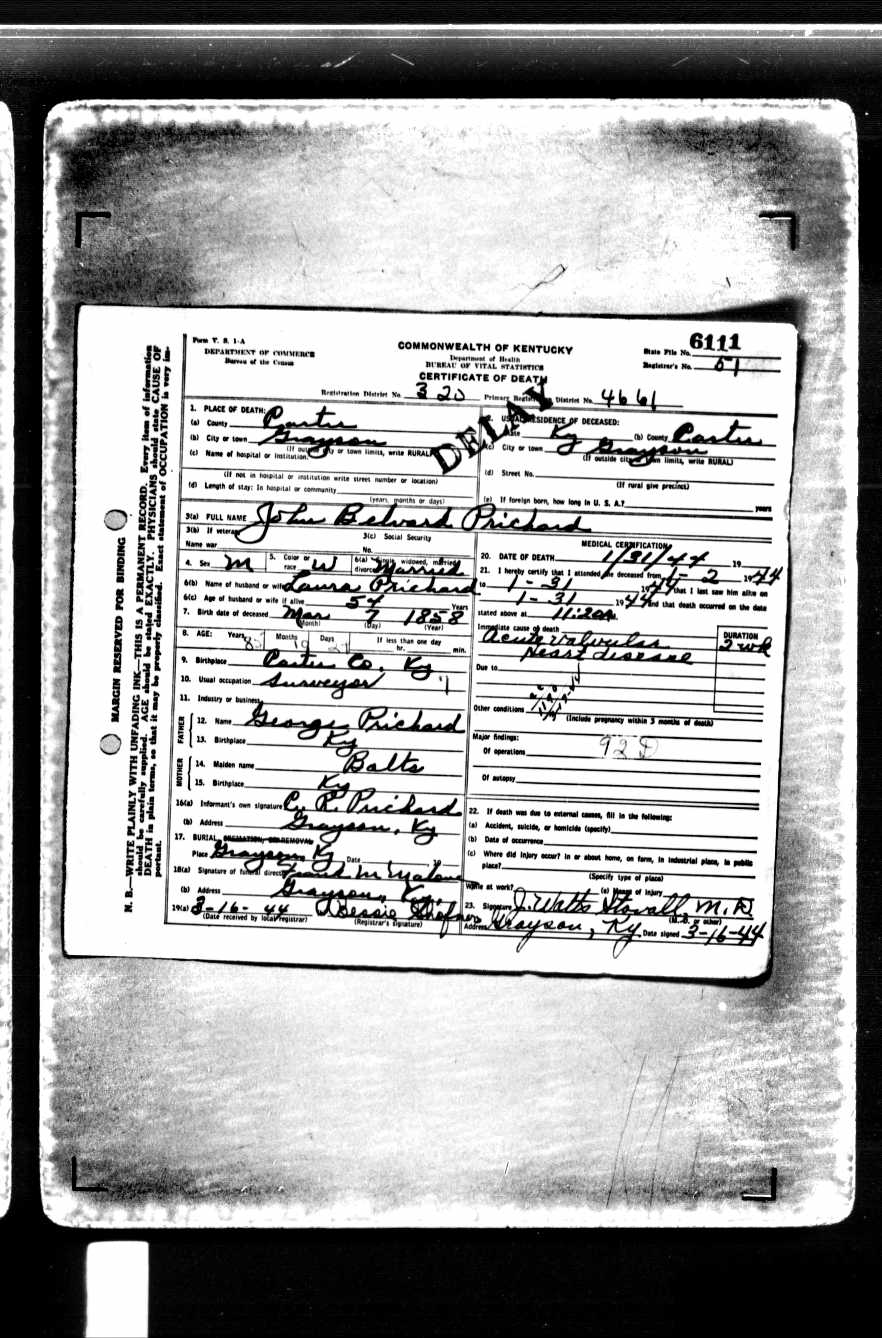 Form V. S. 1-A
DEPARTMENT OF COMMERCE
Bureau of the Census
COMMONWEALTH OF KENTUCKY
Department of Health
BUREAU OF VITAL STATISTICS
CERTIFICATE OF DEATH
State File No. 6111
Registrar's No. 51
Registration District No. 320 Primary Registration District No. 4661
DELAY
MARGIN RESERVED FOR BINDING
N. B.—WRITE PLAINLY WITH UNFADING INK—THIS IS A PERMANENT RECORD. Every item of information
should be carefully supplied. AGE should be stated EXACTLY. PHYSICIANS should state CAUSE OF
DEATH in plain terms, so that it may be properly classified. Exact statement of OCCUPATION is very im-
portant.
1. PLACE OF DEATH:
(a) County Carter
(b) City or town Grayson
(If outside city or town limits, write RURAL)
(c) Name of hospital or institution:
(If not in hospital or institution write street number or location)
(d) Length of stay: In hospital or community
(years, months or days)
2. USUAL RESIDENCE OF DECEASED:
State Ky (b) County Carter
(c) City or town Grayson
(If outside city or town limits, write RURAL)
(d) Street No.
(If rural give precinct)
(e) If foreign born, how long in U. S. A.? years
3(a) FULL NAME John Belvard Prichard
3(b) If veteran
Name war
3(c) Social Security
No.
4. Sex M 5. Color or race W 6(a) Single, widowed, married, divorced Married
6(b) Name of husband or wife Laura Prichard
6(c) Age of husband or wife if alive 54 Years
7. Birth date of deceased Mar 7 1858
(Month) (Day) (Year)
8. AGE: Years 85 Months Days If less than one day
hr. min.
9. Birthplace Carter Co. Ky
10. Usual occupation Surveyor
11. Industry or business
FATHER
12. Name George Prichard
13. Birthplace Ky
MOTHER
14. Maiden name Balts
15. Birthplace Ky
16(a) Informant's own signature C. R. Prichard
(b) Address Grayson, Ky
17. BURIAL, CREMATION, OR REMOVAL
Place Grayson Ky Date 19
18(a) Signature of funeral director Frank M Malone
(b) Address Grayson, Ky.
19(a) 3-16-44 Bessie
(Date received by local registrar) (Registrar's signature)
MEDICAL CERTIFICATION
20. DATE OF DEATH 1/31/44 19
21. I hereby certify that I attended the deceased from 1-2 1944
to 1-31 1944 that I last saw him alive on
1-31 1944 and that death occurred on the date
stated above at 11:20 m.
Immediate cause of death
Acute Valvular
Heart disease
DURATION
2 wk
Due to
Other conditions
(Include pregnancy within 3 months of death)
Major findings:
Of operations 92 D
Of autopsy
22. If death was due to external causes, fill in the following:
(a) Accident, suicide, or homicide (specify)
(b) Date of occurrence
(c) Where did injury occur? In or about home, on farm, in industrial place, in public
place?
(Specify type of place)
While at work? (e) Means of injury
23. Signature J. Watts Stovall M. D
(M. D. or other)
Address Grayson, Ky. Date signed 3-16-44